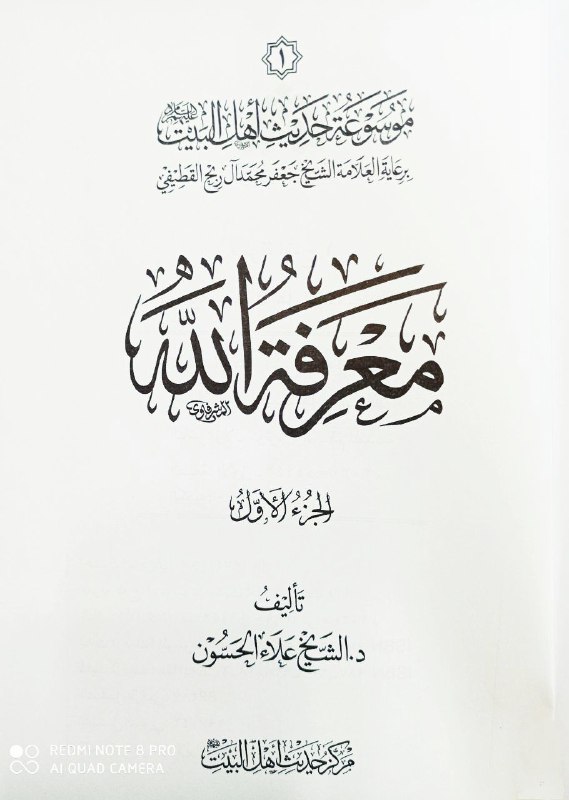 ١
مَوسُوعَةُ حَدِيثِ أَهْلِ البَيْتِ
بِرِعَايَةِ العَلَّامَةِ الشَّيْخِ جَعْفَر مُحَمَّد آل رِيح القَطِيفِي
مَعْرِفَةُ اللهِ
الجُزْءُ الأَوَّلُ
تَأْلِيفُ
د. الشَّيْخ عَلَاء الحَسُّون
مَرْكَز حَدِيثِ أَهْلِ البَيْتِ
REDMI NOTE 8 PRO
AI QUAD CAMERA